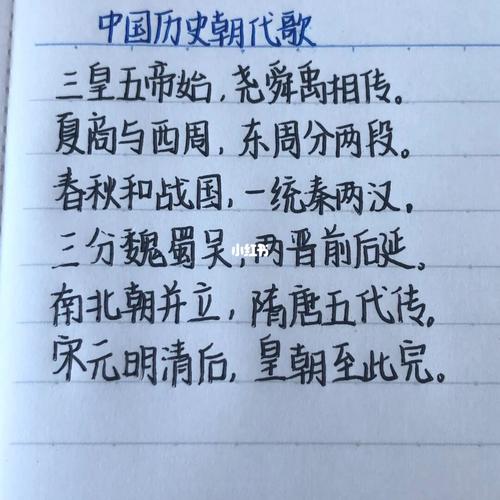 中国历史朝代歌
三皇五帝始,尧舜禹相传。
夏商与西周,东周分两段。
春秋和战国,一统秦两汉。
三分魏蜀吴,两晋前后延。
小红书
南北朝并立,隋唐五代传。
宋元明清后,皇朝至此完。